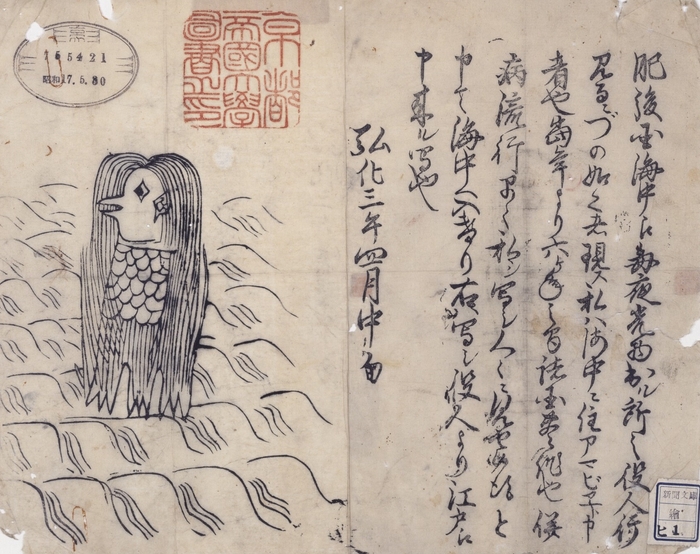 肥後国海中江毎夜光物出ル所之役人行
見るニづの如之者現ス私ハ海中ニ住アマビヱト申
者也當年より六ケ年之間諸国豊作也併
病流行早々私シ写シ人々ニ見セ候得と
申て海中へ入けり右写シ役人より江戸江
申来ル写也
弘化三年四月中旬
京都
帝國大學
圖書之印
昭和17.5.30
新聞文庫
繪
ヒ1